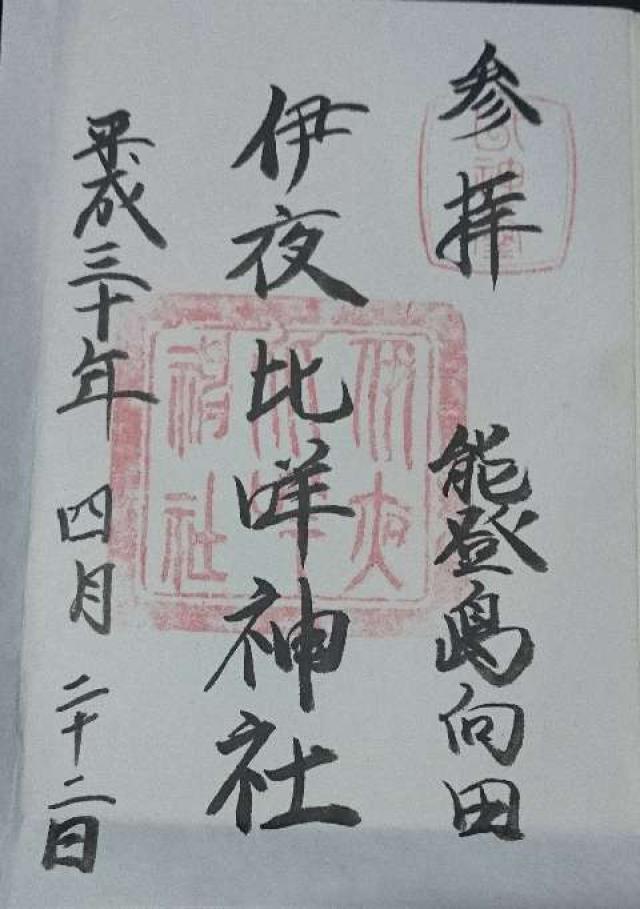 参拝
能登島向田
伊夜比咩神社
平成三十年 四月 二十二日
伊夜
比咩
神社